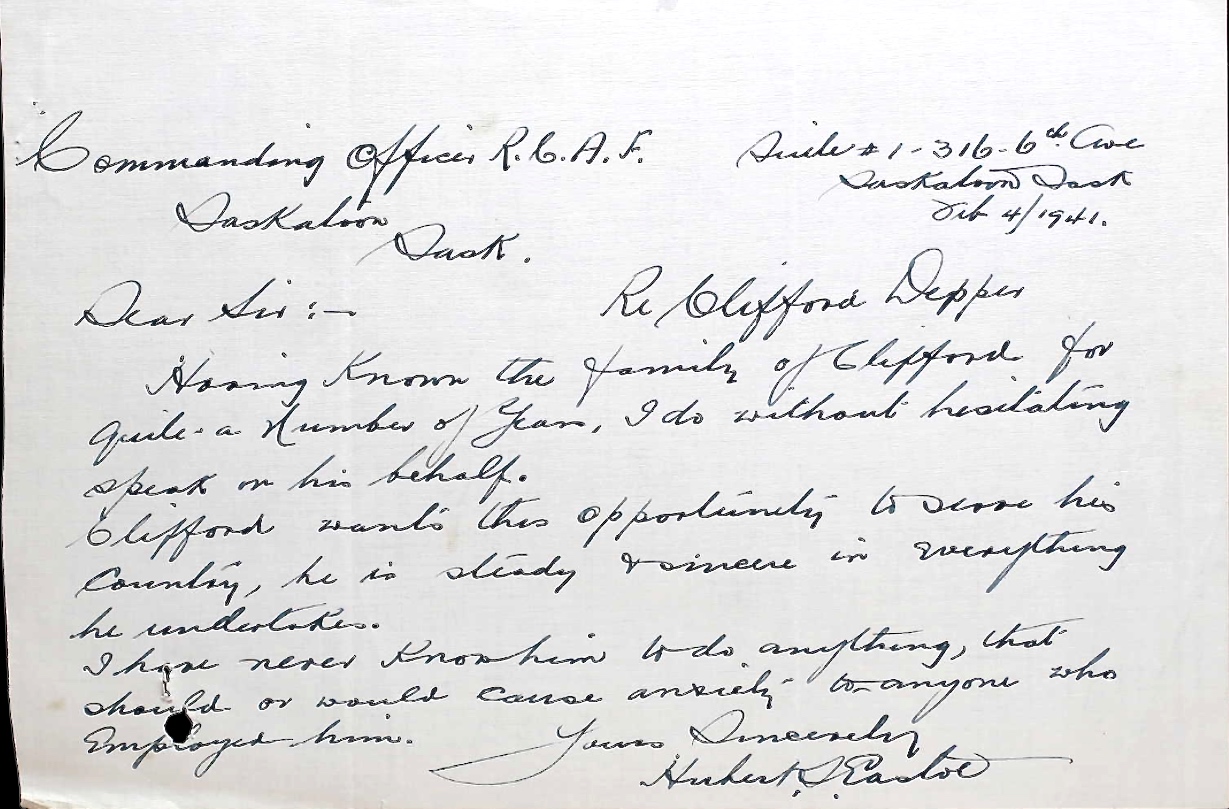 Commanding Officer R.C.A.F.
Suite #1-316-6th Ave
Saskatoon Sask
Saskatoon
Feb 4/1941.
Sask.
Re Clifford Depper
Dear Sir:-
Having Known the family of Clifford for
quite-a Number of Years, I do without hesitating
speak on his behalf.
Clifford wants this opportunity to serve his
Country, he is steady & sincere in everything
he undertakes.
I have never Know him to do anything, that
should or would cause anxiety to-anyone who
Employed him.
Yours Sincerely
Hubert S.